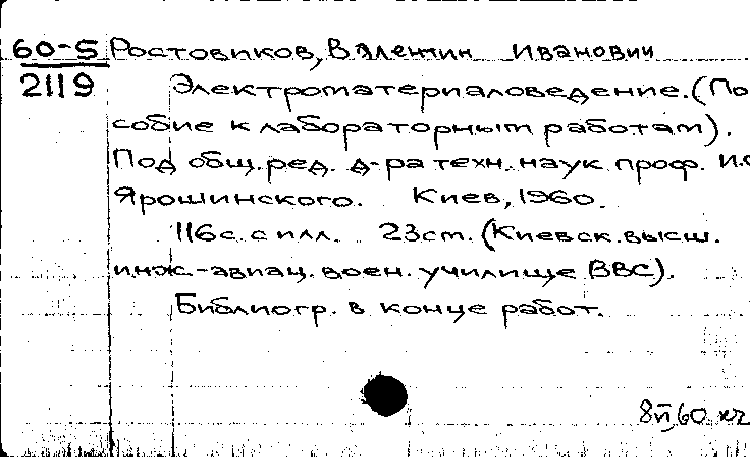 60-5 Ростовиков, Валентин Иванович
2119 Электроматериаловедение. (По
собие к лабораторным работам).
Под общ. ред. д-ра техн. наук проф. И.
Ярошинского. Киев, 1960.
116с. с илл. 23см. (Киевск. высш.
инж.-авиац. воен. училище ВВС).
Библиогр. в конце работ.
8 VI 60